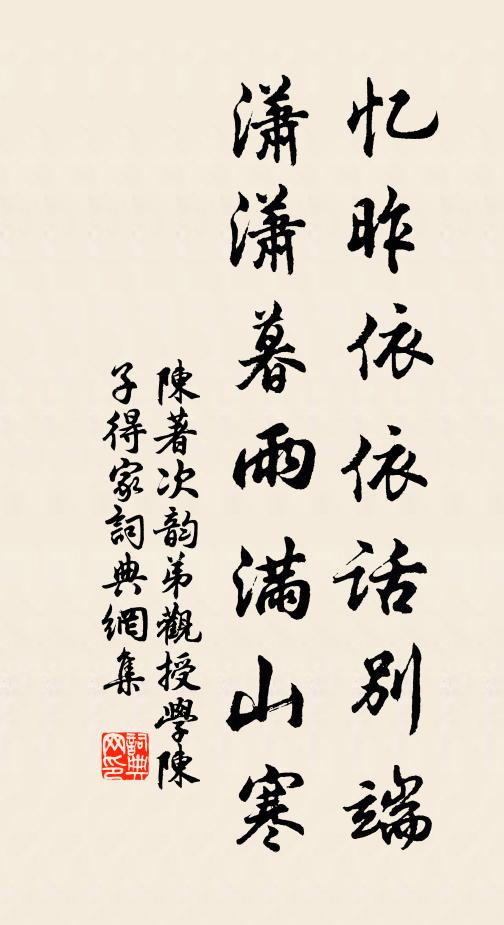 忆昨依依话别端
潇潇暮雨满山寒
陳著次韵弟觀授學陳
子得家詞典網集
詞典网印